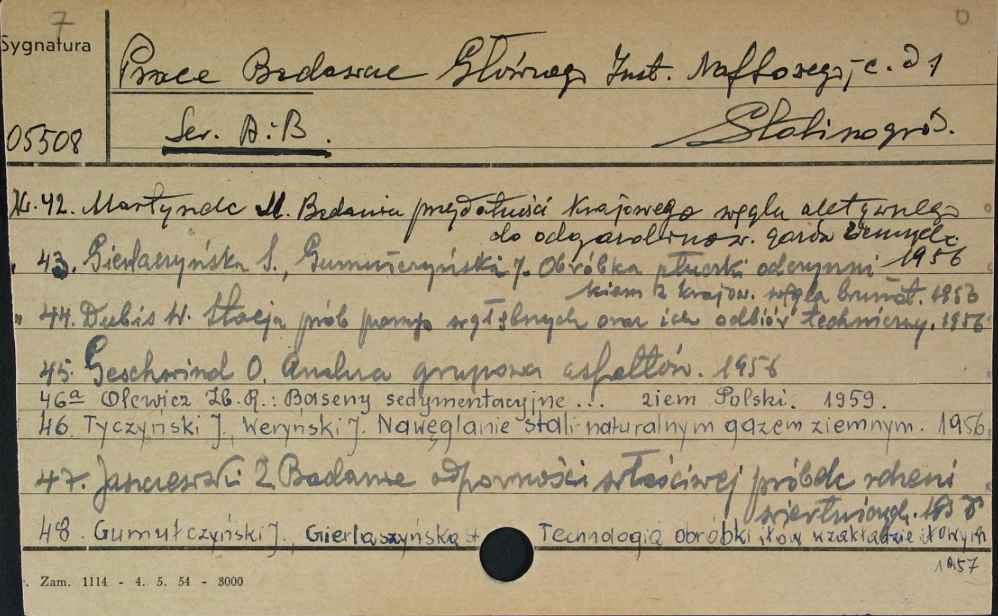 7
0
Sygnatura
Prace Badawcze Głównego Inst. Naftowego, c. d 1
05508
Ser. A i B.
Stalinogród.
Nr. 42. Martynec M. Badania przydatności krajowego węgla aktywnego
do odgazolinow. gazów ziemnych
43. Gierłaszyńska S., Gumułczyński J. Obróbka płuczki odczynni 1956
kiem z krajow. węgla brunat. 1956
" 44. Dubis W. Stacja prób pomp wgłębnych oraz ich odbiór techniczny. 1956
45. Geschwind O. Analiza grupowa asfaltów. 1956
46a Olewicz Zb. R.: Baseny sedymentacyjne ... ziem Polski. 1959.
46. Tyczyński J., Weryński J. Nawęglanie stali naturalnym gazem ziemnym. 1956
47. Badanie odporności właściwej próbek rdzeni
wiertniczych.
48. Gumułczyński J., Gierłaszyńska S. Technologia obróbki iłów w zakładzie iłowym
1957
Zam. 1114 - 4. 5. 54 - 3000